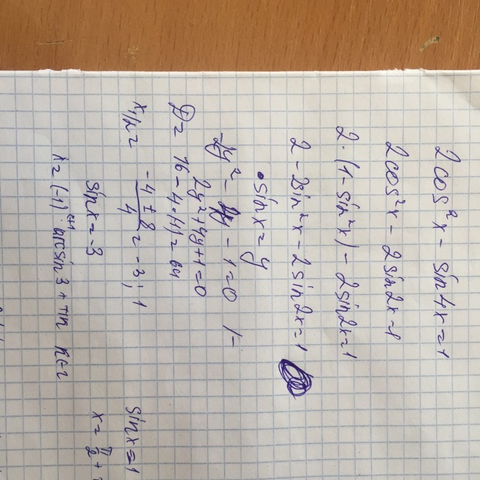 2cos²x - sin4x = 1
2cos²x - 2sin2x = 1
2·(1-sin²x) - 2sin2x = 1
2 - 2sin²x - 2sin2x = 1
sinx = y
2y² + 4y + 1 = 0
D = 16 - 4·(1) = 64
x₁/₂ = (-4 ± 8)/4 = -3; 1
sinx = -3
sinx = 1
x = (-1) arcsin3 + πn n∈z
x = π/2 +